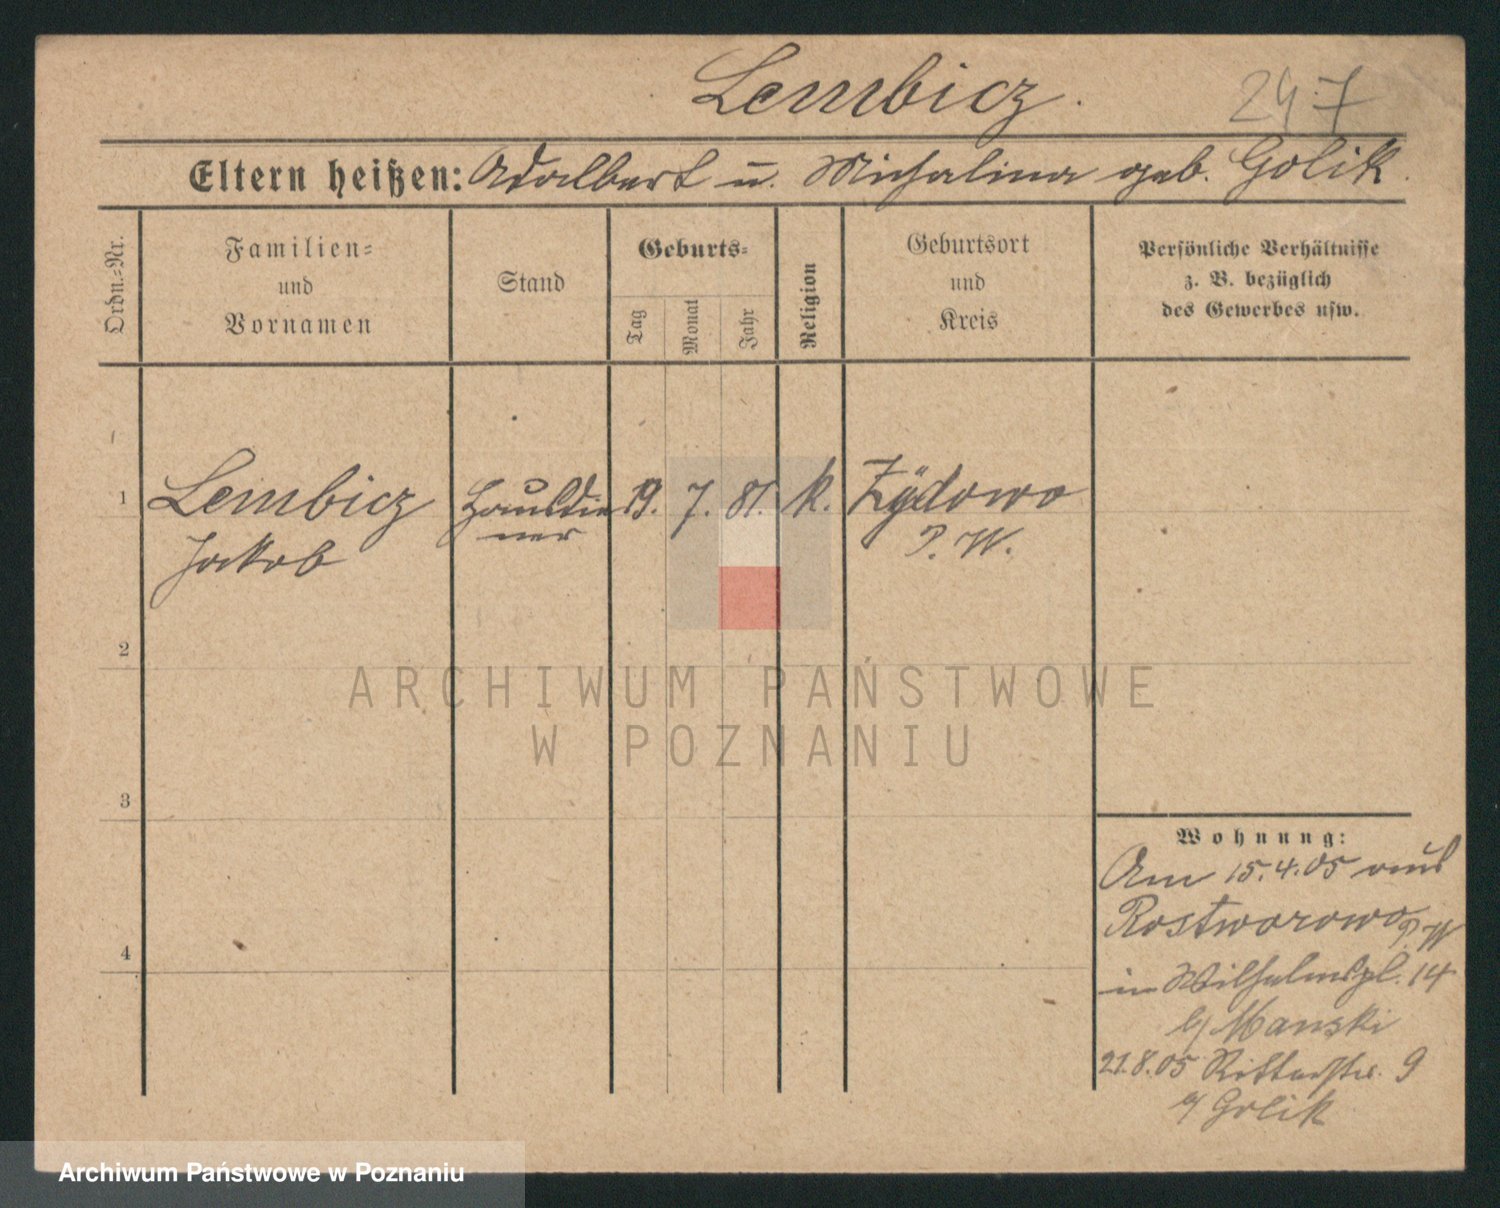 Lembicz.
247
Eltern heißen: Adalbert u. Michalina geb. Golik.
Ordn.-Nr.
Familien- und Vornamen
Stand
Geburts-
Tag
Monat
Jahr
Religion
Geburtsort und Kreis
Persönliche Verhältnisse
z. B. bezüglich
des Gewerbes usw.
1 Lembicz Hausdie 19. 7. 81. k. Zÿdowo
Jakob ner P. W.
2
3
4
Wohnung:
Am 15.4.05 aus
Rostworowo P. W
in Wilhelmspl. 14
b/ Manski
21.8.05 Ritterstr. 9
b/ Golik
ARCHIWUM PAŃSTWOWE
W POZNANIU
Archiwum Państwowe w Poznaniu